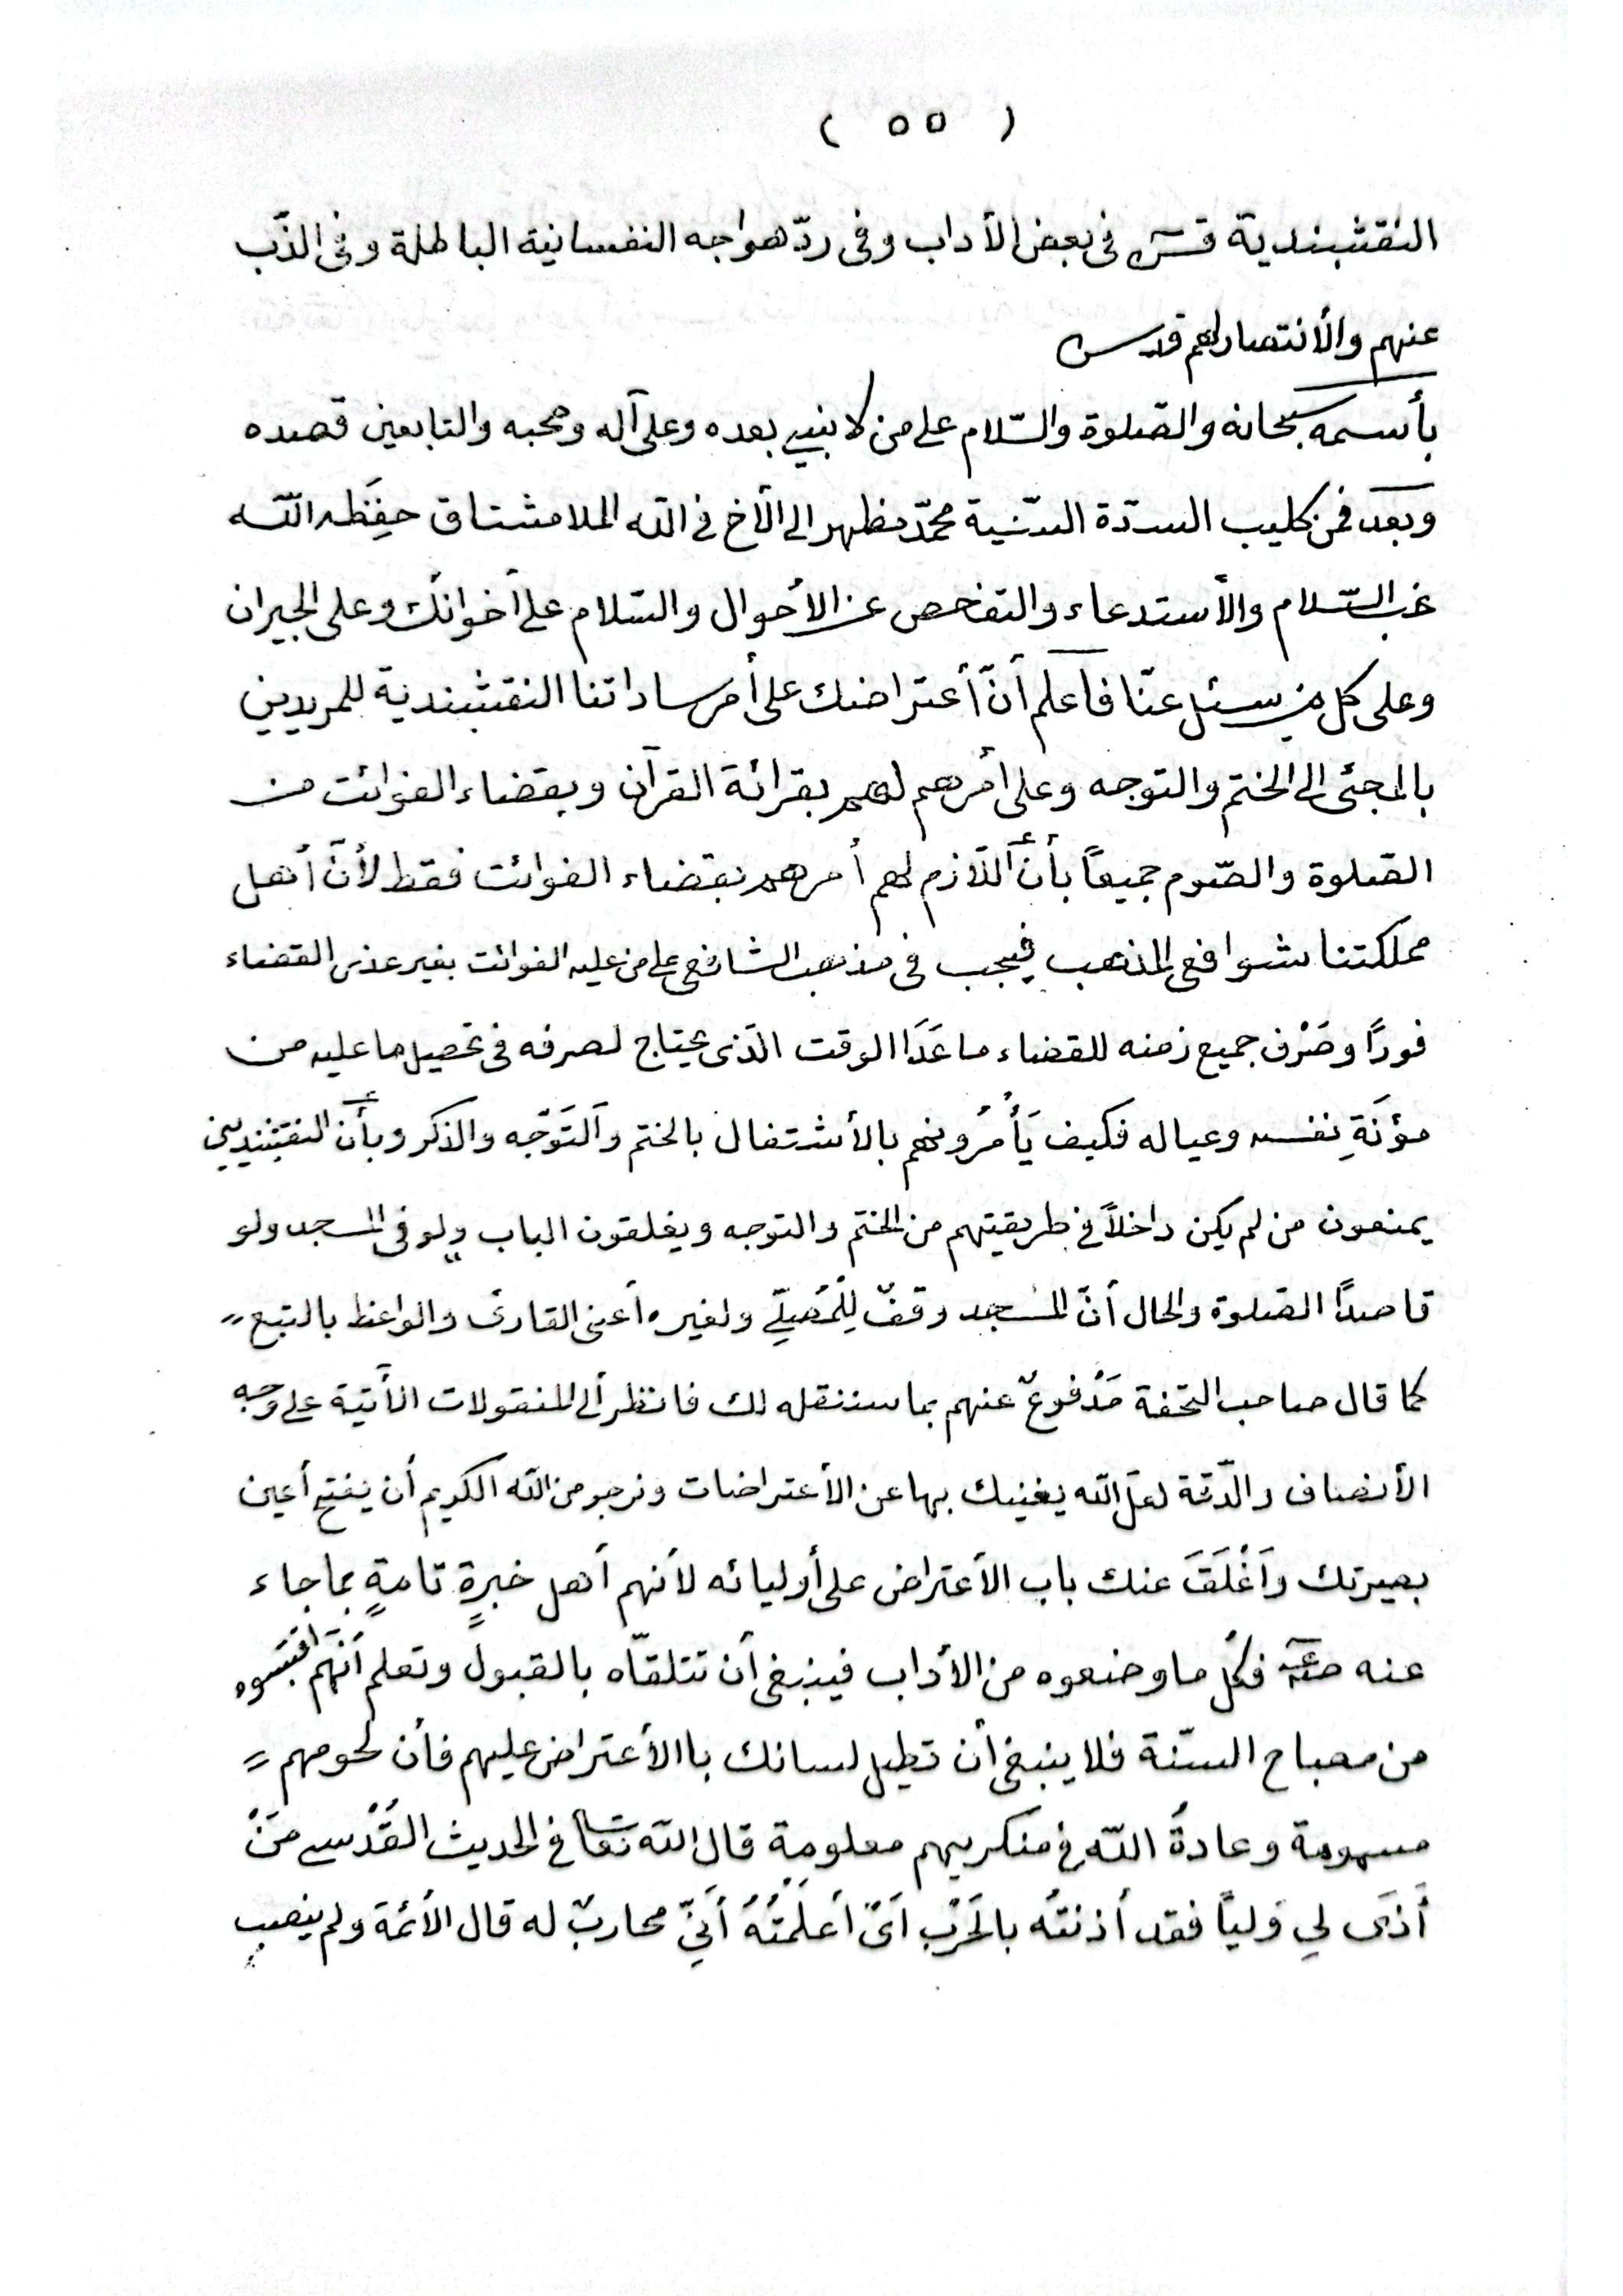 ( ٥٥ )
النقشبندية قس في بعض الآداب وفى ردّ هواجه النفسانية الباطلة وفى الذّب
عنهم والأنتصار لهم قدس
بأسمه سبحانه والصّلوة والسّلام على من لا نبي بعده وعلى آله وصحبه والتابعين قصده
وبعد فمن كليب السدّة السّنية محمّد مظهر الى الأخ في الله الملا مشتاق حفِظَه الله
غب السّلام والأستدعاء والتفحص عن الأحوال والسّلام على أخوانك وعلى الجيران
وعلى كل من سئل عنّا فاعلم أنّ أعتراضك على أمر ساداتنا النقشبندية للمريدين
بالمجئ الى الختم والتوجه وعلى أمرهم لهم بقرائة القرآن وبقضاء الفوائت من
الصّلوة والصّوم جميعاً بأنّ اللّازم لهم أمرهم بقضاء الفوائت فقط لأنّ أهل
مملكتنا شوافعي المذهب فيجب فى مذهب الشافعي على من عليه الفوائت بغير عذر القضاء
فوراً وصَرْف جميع زمنه للقضاء ما عَدَا الوقت الذى يحتاج لصرفه فى تحصيل ما عليه من
مؤنَةِ نفسه وعياله فكيف يَأْمُرُونهم بالأشتغال بالختم والتَوَجّه والذكر وبأن النقشبنديين
يمنعون من لم يكن داخلاً في طريقيتهم من الختم والتوجه ويغلقون الباب ولو فى المسجد ولو
قاصداً الصّلوة والحال أنّ المسجد وقفٌ لِلْمُصَلِّي ولغيره أعنى القارئ والواعظ بالتبع
كما قال صاحب التحفة مَدْفوعٌ عنهم بما سننقله لك فانظر ألى المنقولات الأتية على وجه
الأنصاف والدّقة لعلّ الله يغنيك بها عن الأعتراضات ونرجو من الله الكريم أن يفتح أعين
بصيرتك وَأغْلَقَ عنك باب الأعتراض على أوليائه لأنهم أهل خبرةٍ تامةٍ بما جاء
عنه فكلّ ما وضعوه من الأداب فينبغى أن تتلقّاه بالقبول وتعلم أنّهم اقتبسوه
من مصباح السنّة فلا ينبغى أن تطيل لسانك باالأعتراض عليهم فأن لحومهم
مسمومة وعادةُ الله في منكريهم معلومة قال الله تعا في الحديث القُدْسي مَنْ
أذَى لي وَلياً فقد أذنتُه بالحَرْبِ اَىْ أعلَمْتُهُ أنّي محاربٌ له قال الأئمة ولم ينصب